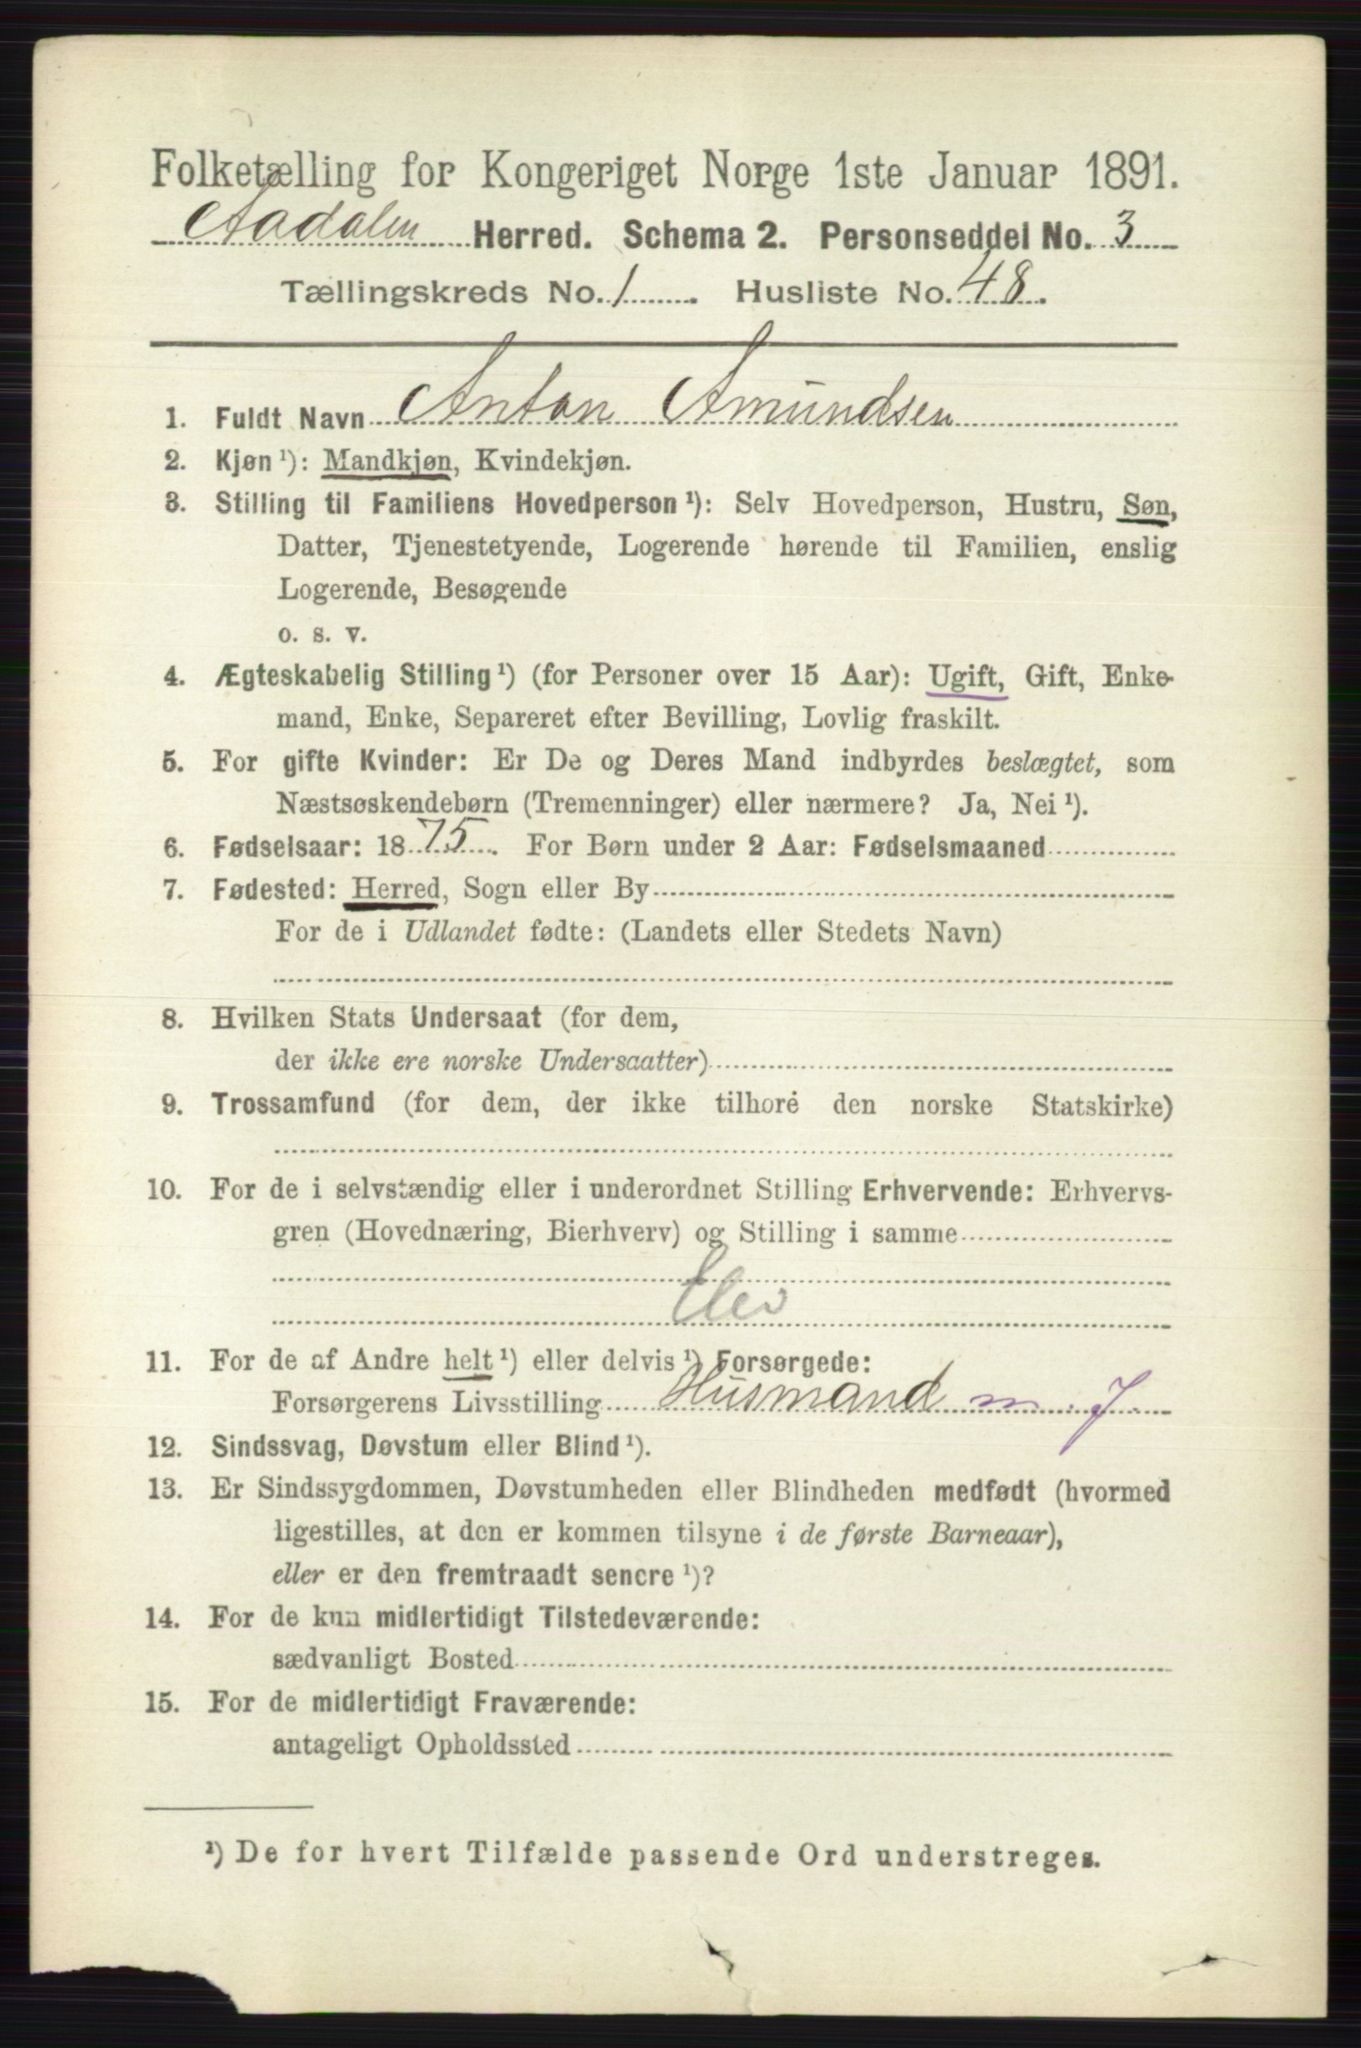 Folketælling for Kongeriget Norge 1ste Januar 1891.
Aadalen Herred. Schema 2. Personseddel No. 3
Tællingskreds No. 1. Husliste No. 48.
1. Fuldt Navn Anton Amundsen
2. Kjøn ¹): Mandkjøn, Kvindekjøn.
3. Stilling til Familiens Hovedperson ¹): Selv Hovedperson, Hustru, Søn,
Datter, Tjenestetyende, Logerende hørende til Familien, enslig
Logerende, Besøgende
o. s. v.
4. Ægteskabelig Stilling ¹) (for Personer over 15 Aar): Ugift, Gift, Enke-
mand, Enke, Separeret efter Bevilling, Lovlig fraskilt.
5. For gifte Kvinder: Er De og Deres Mand indbyrdes beslægtet, som
Næstsøskendebørn (Tremenninger) eller nærmere? Ja, Nei ¹).
6. Fødselsaar: 1875. For Børn under 2 Aar: Fødselsmaaned
7. Fødested: Herred, Sogn eller By
For de i Udlandet fødte: (Landets eller Stedets Navn)
8. Hvilken Stats Undersaat (for dem,
der ikke ere norske Undersaatter)
9. Trossamfund (for dem, der ikke tilhøre den norske Statskirke)
10. For de i selvstændig eller i underordnet Stilling Erhvervende: Erhvervs-
gren (Hovednæring, Bierhverv) og Stilling i samme
Elev
11. For de af Andre helt ¹) eller delvis ¹) Forsørgede:
Forsørgerens Livsstilling Husmand m. J.
12. Sindssvag, Døvstum eller Blind ¹).
13. Er Sindssygdommen, Døvstumheden eller Blindheden medfødt (hvormed
ligestilles, at den er kommen tilsyne i de første Barneaar),
eller er den fremtraadt senere ¹)?
14. For de kun midlertidigt Tilstedeværende:
sædvanligt Bosted
15. For de midlertidigt Fraværende:
antageligt Opholdssted
¹) De for hvert Tilfælde passende Ord understreges.